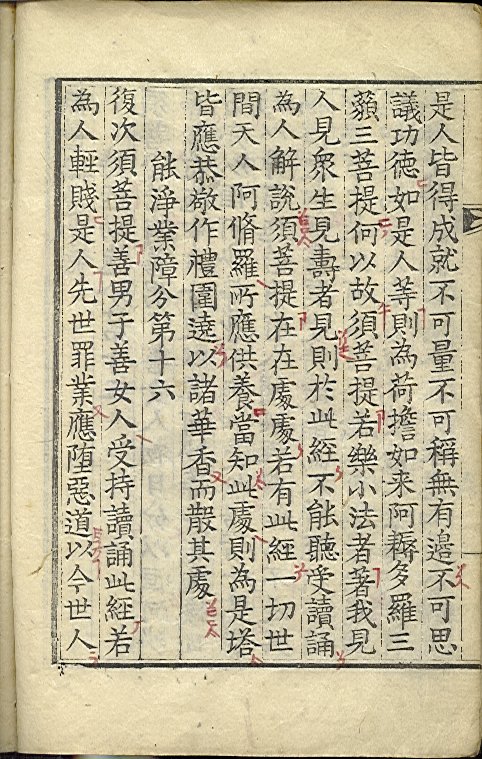 是人皆得成就不可量不可稱無有邊不可思
議功德如是人等則為荷擔如来阿耨多羅三
藐三菩提何以故須菩提若樂小法者著我見
人見衆生見壽者見則於此經不能聽受讀誦
為人解說須菩提在在處處若有此經一切世
間天人阿脩羅所應供養當知此處則為是塔
皆應恭敬作禮圍遶以諸華香而散其處
能淨業障分第十六
復次須菩提善男子善女人受持讀誦此經若
為人輕賤是人先世罪業應堕惡道以今世人